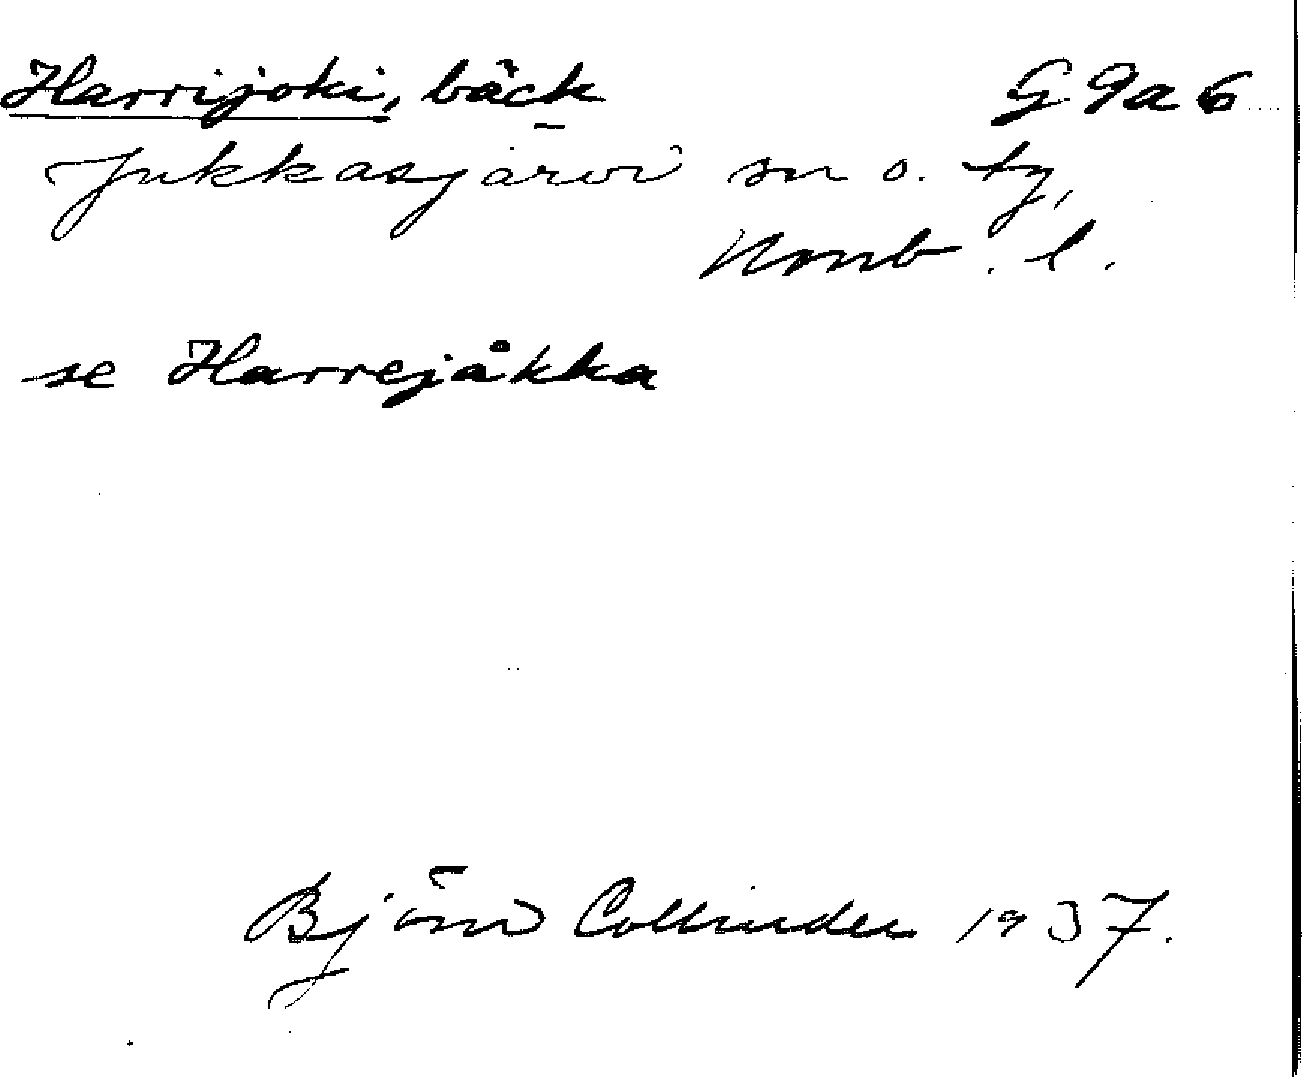 Harrijoki, bäck G 9a6
Jukkasjärvi sn o. tg,
Norrb. l.
se Harrejåkka
Björn Collinder 1937.